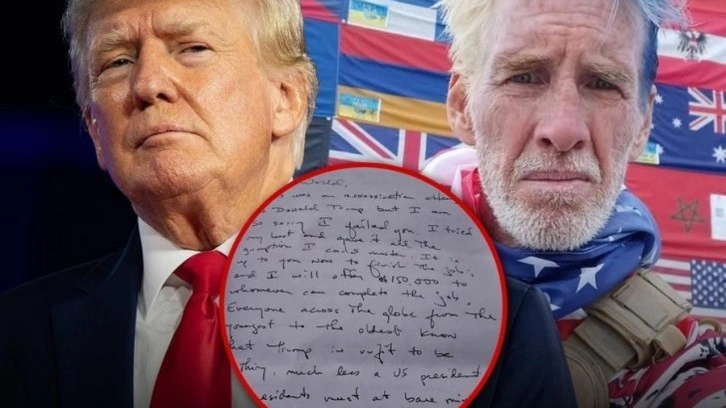 World,
was an assassination atte
Donald Trump but I am
so sorry I failed you. I tried
my best and gave it all the
gumption I could muster. It is
up to you now to finish the job;
and I will offer $150,000 to
whomever can complete the job.
Everyone across the globe from the
youngest to the oldest know
hat Trump is unfit to be
thing, much less a US president
esidents must at bare min